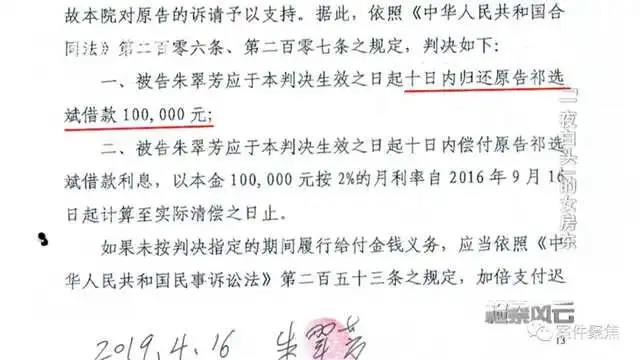 故本院对原告的诉请予以支持。据此，依照《中华人民共和国合
同法》第二百零六条、第二百零七条之规定，判决如下：
一、被告朱翠芳应于本判决生效之日起十日内归还原告祁选
斌借款 100,000 元；
二、被告朱翠芳应于本判决生效之日起十日内偿付原告祁选
斌借款利息，以本金 100,000 元按 2%的月利率自 2016 年 9 月 16
日起计算至实际清偿之日止。
如果未按判决指定的期间履行给付金钱义务，应当依照《中
华人民共和国民事诉讼法》第二百五十三条之规定，加倍支付迟
2019.4.16 朱翠芳
一夜白头的女房东
检察风云
案件聚焦
13